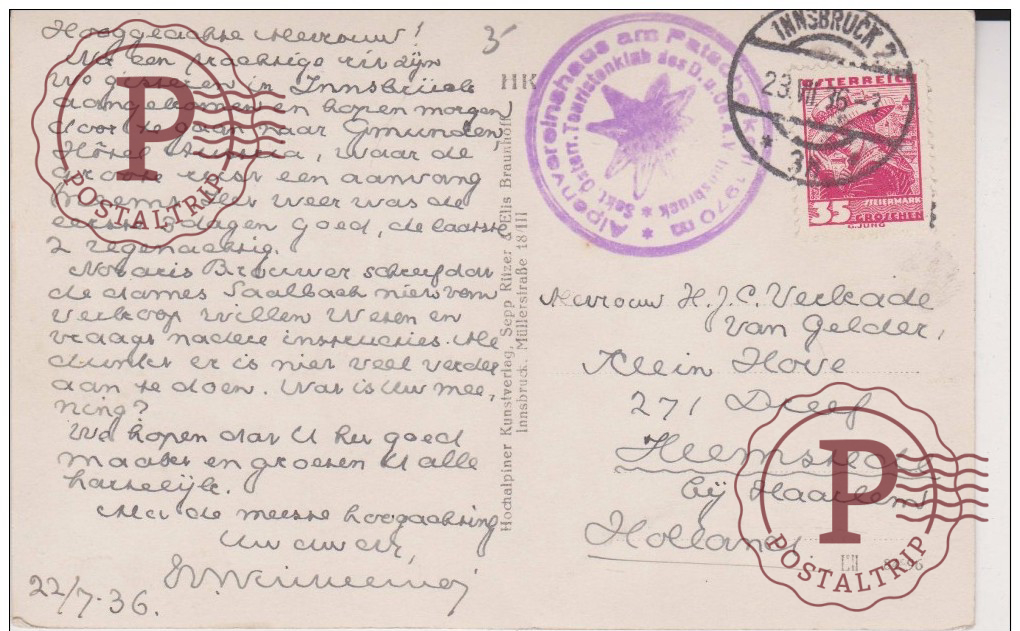 Hooggeachte Mevrouw!
We een prachtige rit zijn
We gisteren in Innsbrück
aangekomen en hopen morgen
door te gaan naar Gmunden,
Hôtel Austria, waar de
een aanvang
neemt. Het weer was de
eerste 3 dagen goed, de laatste
2 regenachtig.
Notaris Brouwer schreef dat
de dames Saalbach niet van
verkoop willen weten en
vraagt nadere instructies. Me
dunkt er is niet veel verder
aan te doen. Wat is Uw mee,
ning?
We hopen dat U het goed
maakt en groeten U alle
hartelijk.
Met de meeste hoogachting
Uw
22/7-36.
3
HK
Hochalpiner Kunstverlag, Sepp Ritzer & Elis Braunhoff
Innsbruck, Müllerstraße 18/III
Alpenvereinshaus am Patscherkofel 1970 m
* Sekt. Österr. Touristenklub des D. u. Ö. A. V. Innsbruck *
INNSBRUCK 2
23.VII 36-
* 3
ÖSTERREICH
35
STEIERMARK
GROSCHEN
G. JUNG
Mevrouw H.J.C. Verkade
van Gelder,
Klein Hove
271 Dreef
Heemstede
bij Haarlem
Holland.
LII
P
POSTALTRIP
P
POSTALTRIP